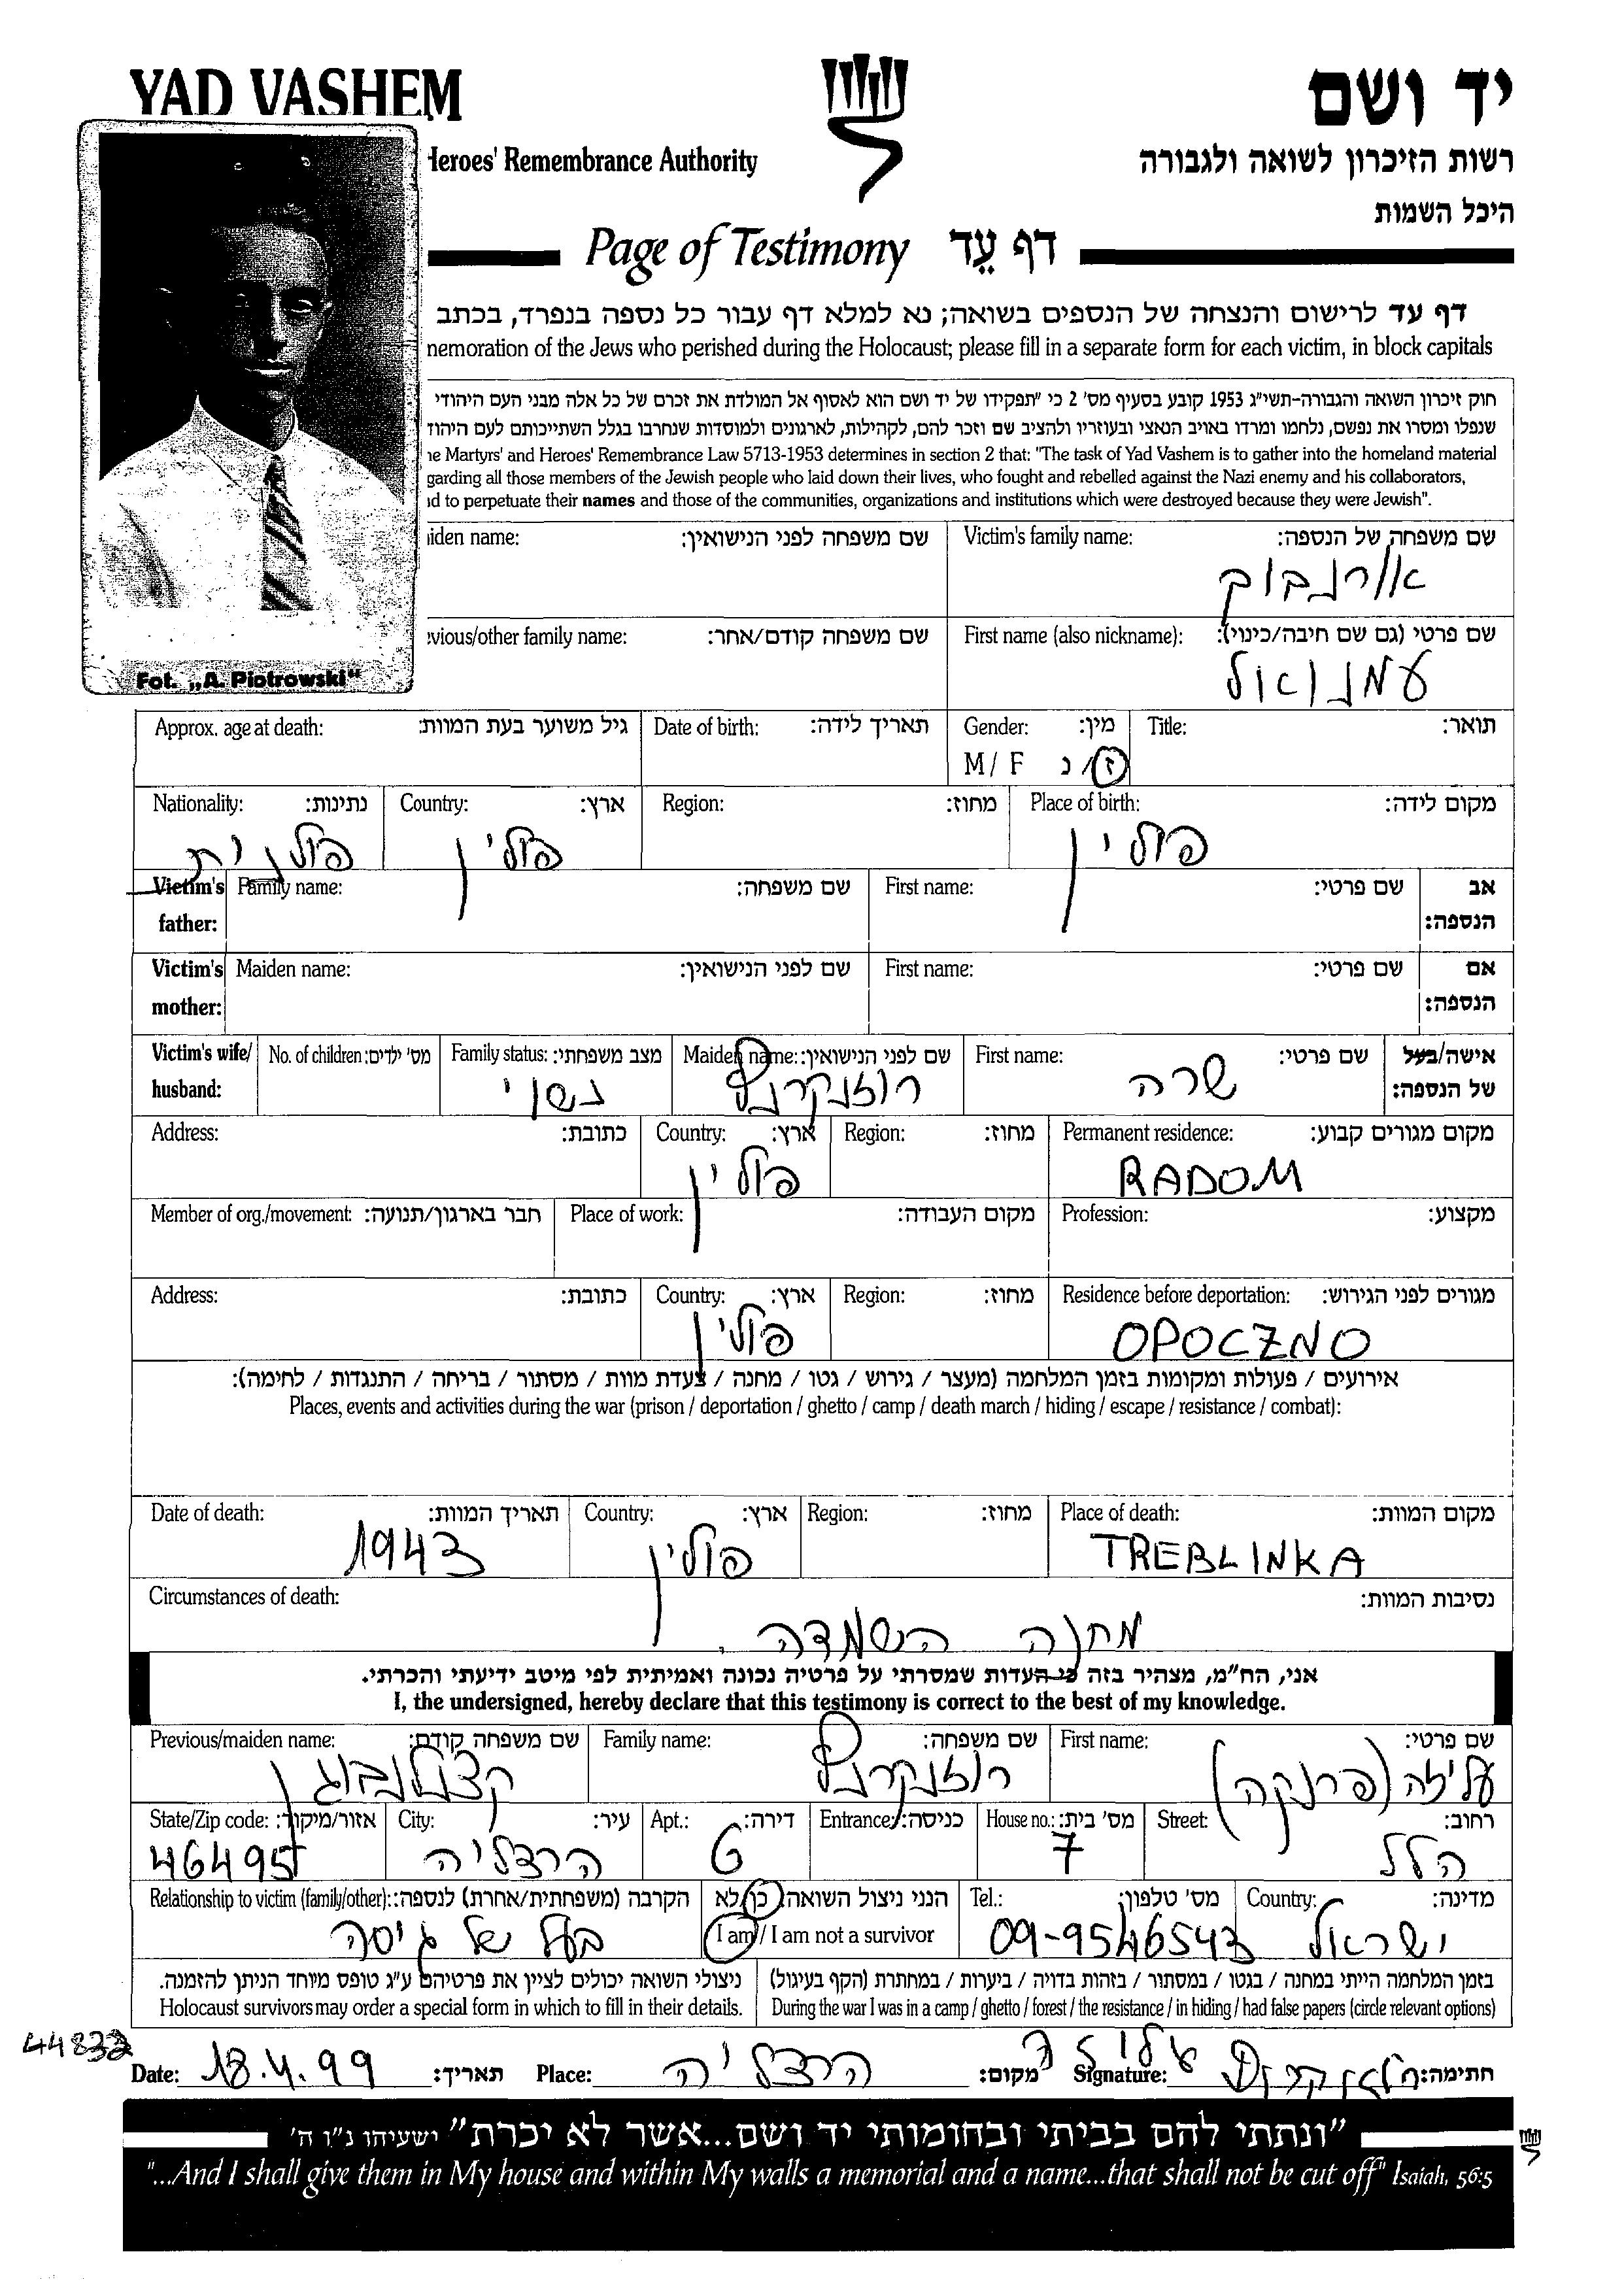 YAD VASHEM
יד ושם
Heroes' Remembrance Authority
רשות הזיכרון לשואה ולגבורה
היכל השמות
Page of Testimony דף עֵד
דף עד לרישום והנצחה של הנספים בשואה; נא למלא דף עבור כל נספה בנפרד, בכתב
nemoration of the Jews who perished during the Holocaust; please fill in a separate form for each victim, in block capitals
חוק זיכרון השואה והגבורה-תשי"ג 1953 קובע בסעיף מס' 2 כי "תפקידו של יד ושם הוא לאסוף אל המולדת את זכרם של כל אלה מבני העם היהודי
שנפלו ומסרו את נפשם, נלחמו ומרדו באויב הנאצי ובעוזריו ולהציב שם וזכר להם, לקהילות, לארגונים ולמוסדות שנחרבו בגלל השתייכותם לעם היהוד
ne Martyrs' and Heroes' Remembrance Law 5713-1953 determines in section 2 that: "The task of Yad Vashem is to gather into the homeland material
garding all those members of the Jewish people who laid down their lives, who fought and rebelled against the Nazi enemy and his collaborators,
id to perpetuate their names and those of the communities, organizations and institutions which were destroyed because they were Jewish".
iden name: שם משפחה לפני הנישואין: Victim's family name: שם משפחה של הנספה:
אורנבוק
vious/other family name: שם משפחה קודם/אחר: First name (also nickname): שם פרטי (גם שם חיבה/כינוי):
עמנואל
Fot. „A. Piotrowski"
Approx. age at death: גיל משוער בעת המוות: Date of birth: תאריך לידה: Gender: מין: Title: תואר:
M / F ז/נ
Nationality: נתינות: Country: ארץ: Region: מחוז: Place of birth: מקום לידה:
פולנית פולין פולין
Victim's Family name: שם משפחה: First name: שם פרטי: אב
father: הנספה:
Victim's Maiden name: שם לפני הנישואין: First name: שם פרטי: אם
mother: הנספה:
Victim's wife/ No. of children: מס' ילדים: Family status: מצב משפחתי: Maiden name: שם לפני הנישואין: First name: שם פרטי: אישה/בעל
husband: נשוי רוזנקרנץ שרה של הנספה:
Address: כתובת: Country: ארץ: Region: מחוז: Permanent residence: מקום מגורים קבוע:
פולין RADOM
Member of org./movement: חבר בארגון/תנועה: Place of work: מקום העבודה: Profession: מקצוע:
Address: כתובת: Country: ארץ: Region: מחוז: Residence before deportation: מגורים לפני הגירוש:
פולין OPOCZNO
אירועים / פעולות ומקומות בזמן המלחמה (מעצר / גירוש / גטו / מחנה / צעדת מוות / מסתור / בריחה / התנגדות / לחימה):
Places, events and activities during the war (prison / deportation / ghetto / camp / death march / hiding / escape / resistance / combat):
Date of death: תאריך המוות: Country: ארץ: Region: מחוז: Place of death: מקום המוות:
1943 פולין TREBLINKA
Circumstances of death: נסיבות המוות:
מחנה השמדה.
אני, הח"מ, מצהיר בזה כי העדות שמסרתי על פרטיה נכונה ואמיתית לפי מיטב ידיעתי והכרתי.
I, the undersigned, hereby declare that this testimony is correct to the best of my knowledge.
Previous/maiden name: שם משפחה קודם: Family name: שם משפחה: First name: שם פרטי:
קצנלנבוגן רוזנקרנץ עליזה (פרנקה)
State/Zip code: אזור/מיקוד: City: עיר: Apt.: דירה: Entrance: כניסה: House no.: מס' בית: Street: רחוב:
46495 הרצליה 6 7 הלל
Relationship to victim (family/other): הקרבה (משפחתית/אחרת) לנספה: הנני ניצול השואה: כן/לא Tel.: מס' טלפון: Country: מדינה:
בעל של גיסה I am / I am not a survivor 09-9546543 ישראל
ניצולי השואה יכולים לציין את פרטיהם ע"ג טופס מיוחד הניתן להזמנה. בזמן המלחמה הייתי במחנה / בגטו / במסתור / בזהות בדויה / ביערות / במחתרת (הקף בעיגול)
Holocaust survivors may order a special form in which to fill in their details. During the war I was in a camp / ghetto / forest / the resistance / in hiding / had false papers (circle relevant options)
44832
Date: 18.4.99 תאריך: Place: הרצליה מקום: Signature: עליזה רוזנקרנץ חתימה:
"ונתתי להם בביתי ובחומותי יד ושם...אשר לא יכרת" ישעיהו נ"ו ה'
"...And I shall give them in My house and within My walls a memorial and a name...that shall not be cut off" Isaiah, 56:5